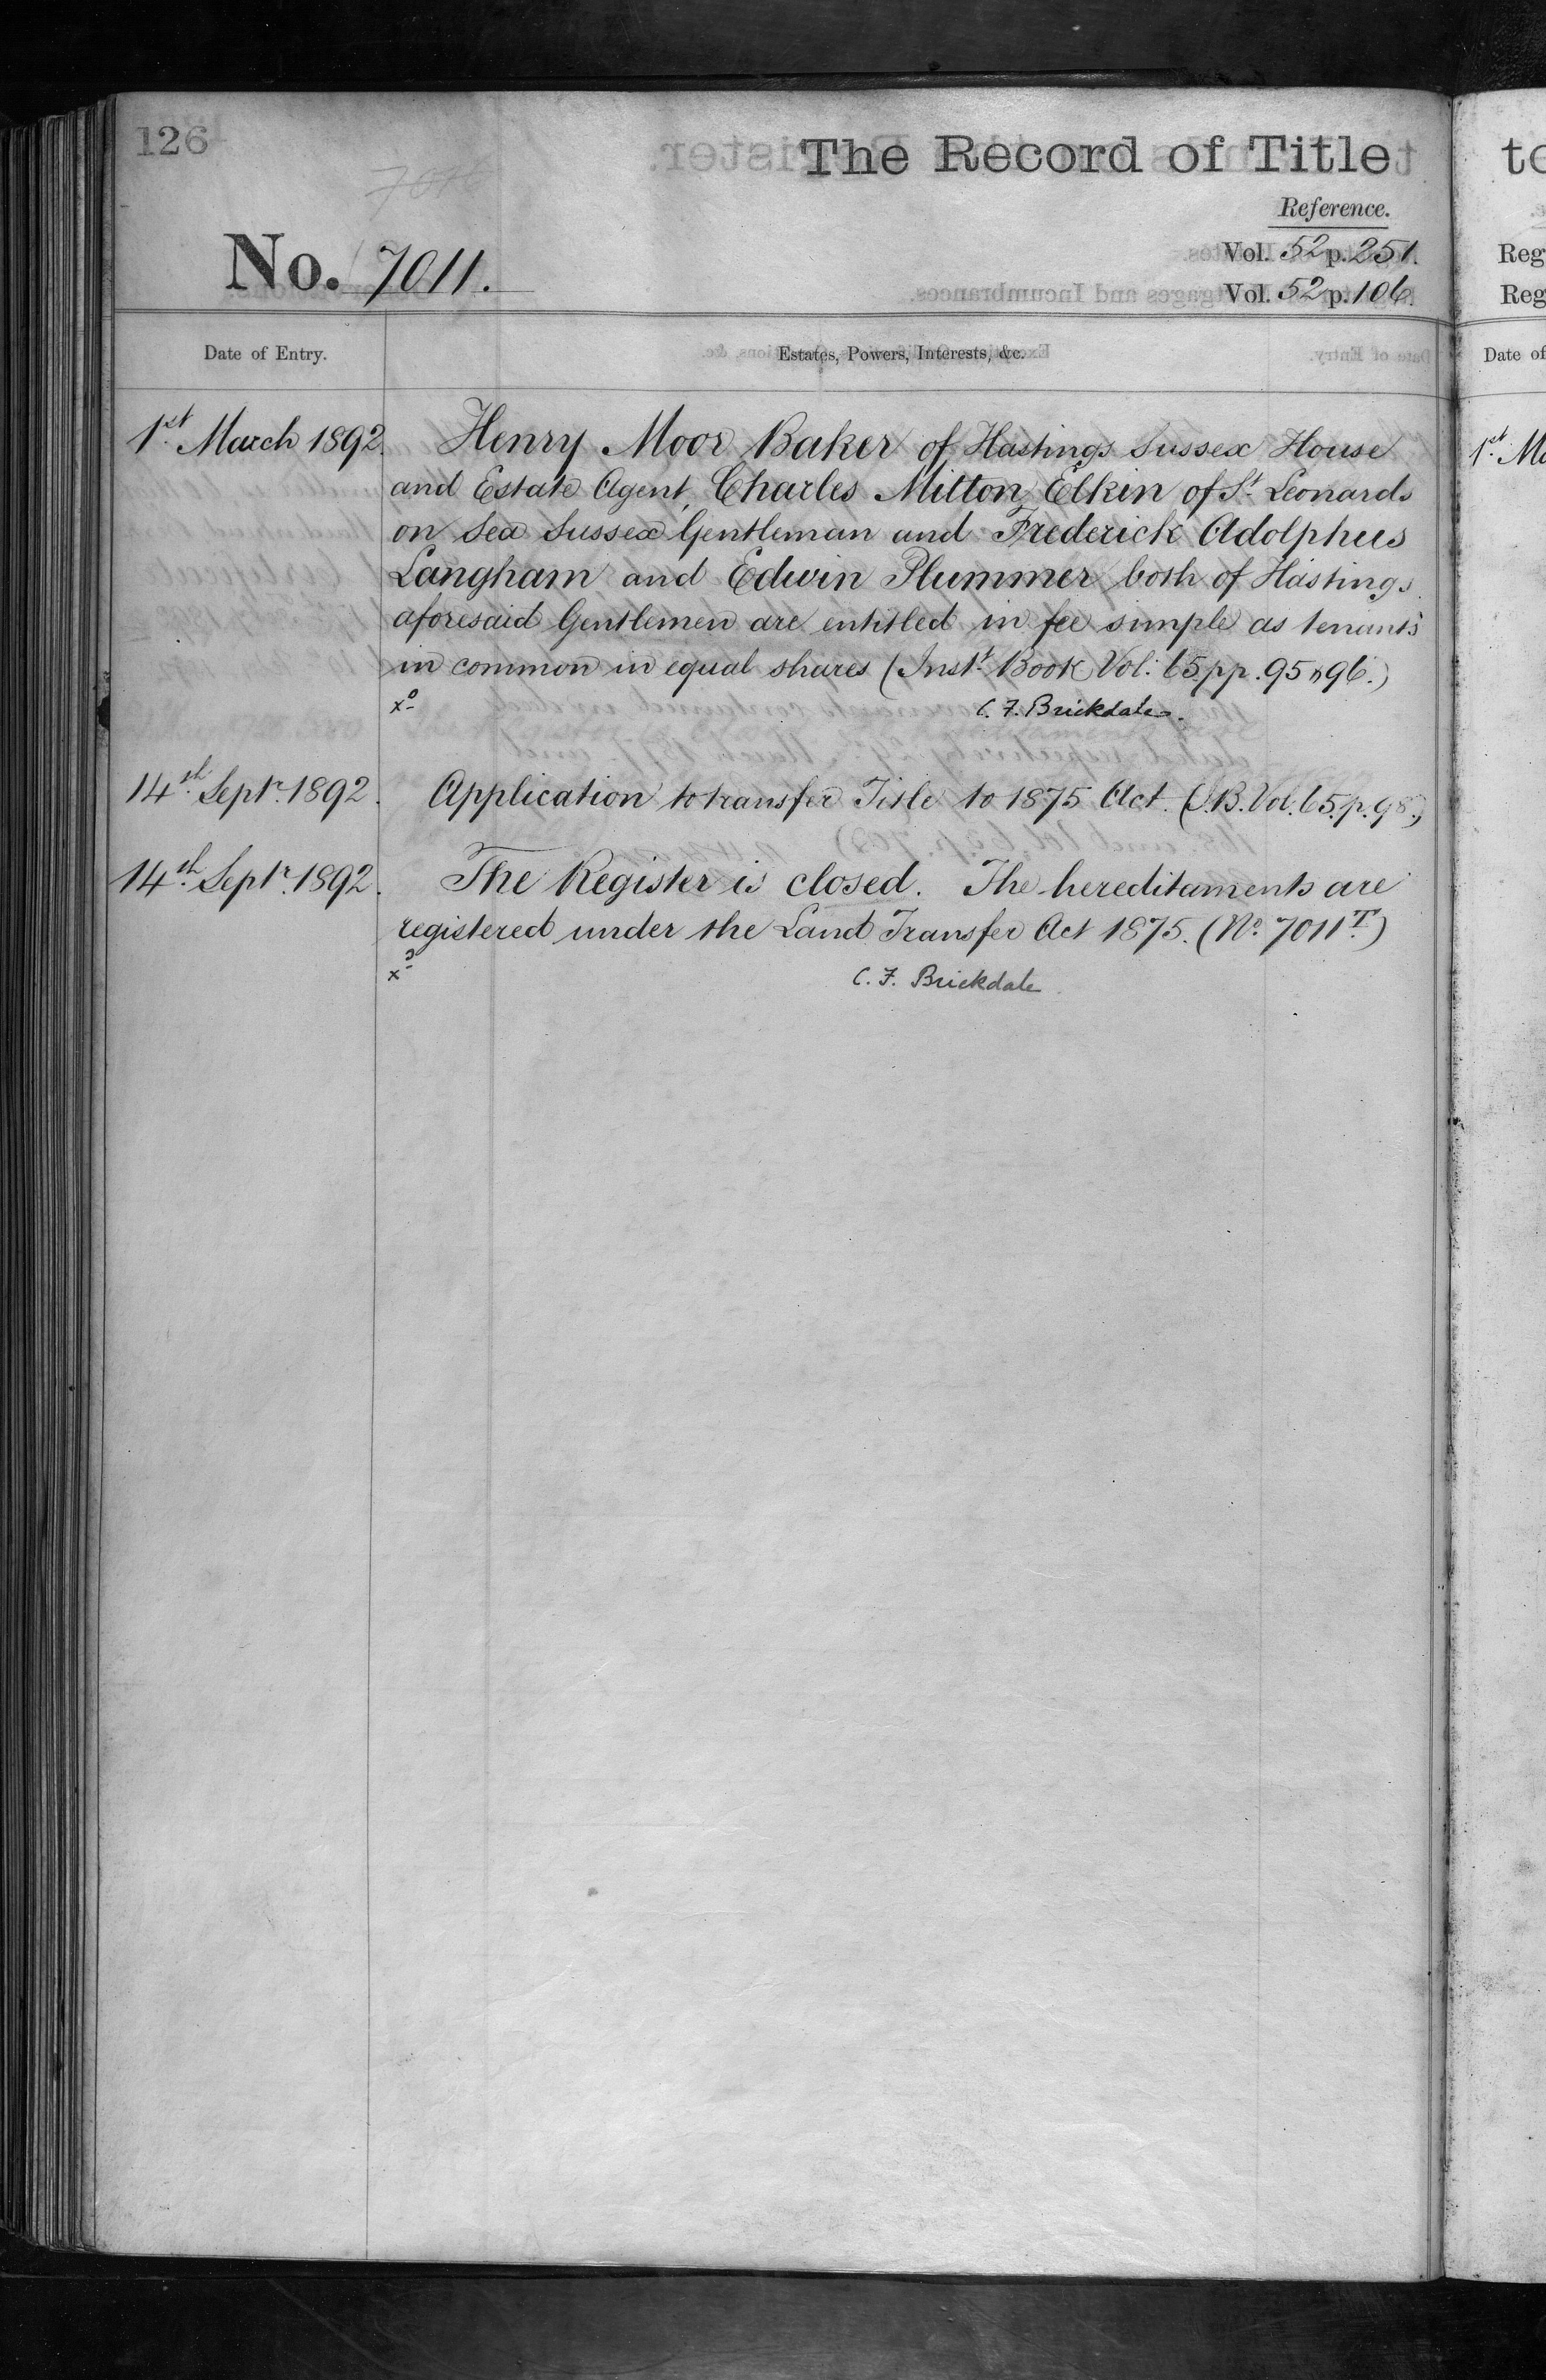 126
The Record of Title
Reference.
No. 7011.
Vol. 52 p. 251.
Vol. 52 p. 106.
Date of Entry.
Estates, Powers, Interests, &c.
1st March 1892.
Henry Moor Baker of Hastings Sussex House
and Estate Agent, Charles Milton Elkin of St Leonards
on Sea Sussex Gentleman and Frederick Adolphus
Langham and Edwin Plummer both of Hastings
aforesaid Gentlemen are entitled in fee simple as tenants
in common in equal shares (Inst. Book Vol. 65 pp. 95 & 96.)
C. F. Brickdale.
14th Septr. 1892.
Application to transfer Title to 1875 Act. (I.B. Vol. 65. p. 98.)
14th Septr. 1892.
The Register is closed. The hereditaments are
registered under the Land Transfer Act 1875. (No. 7011T.)
C. F. Brickdale
to
Reg
Reg
Date of
1st Ma